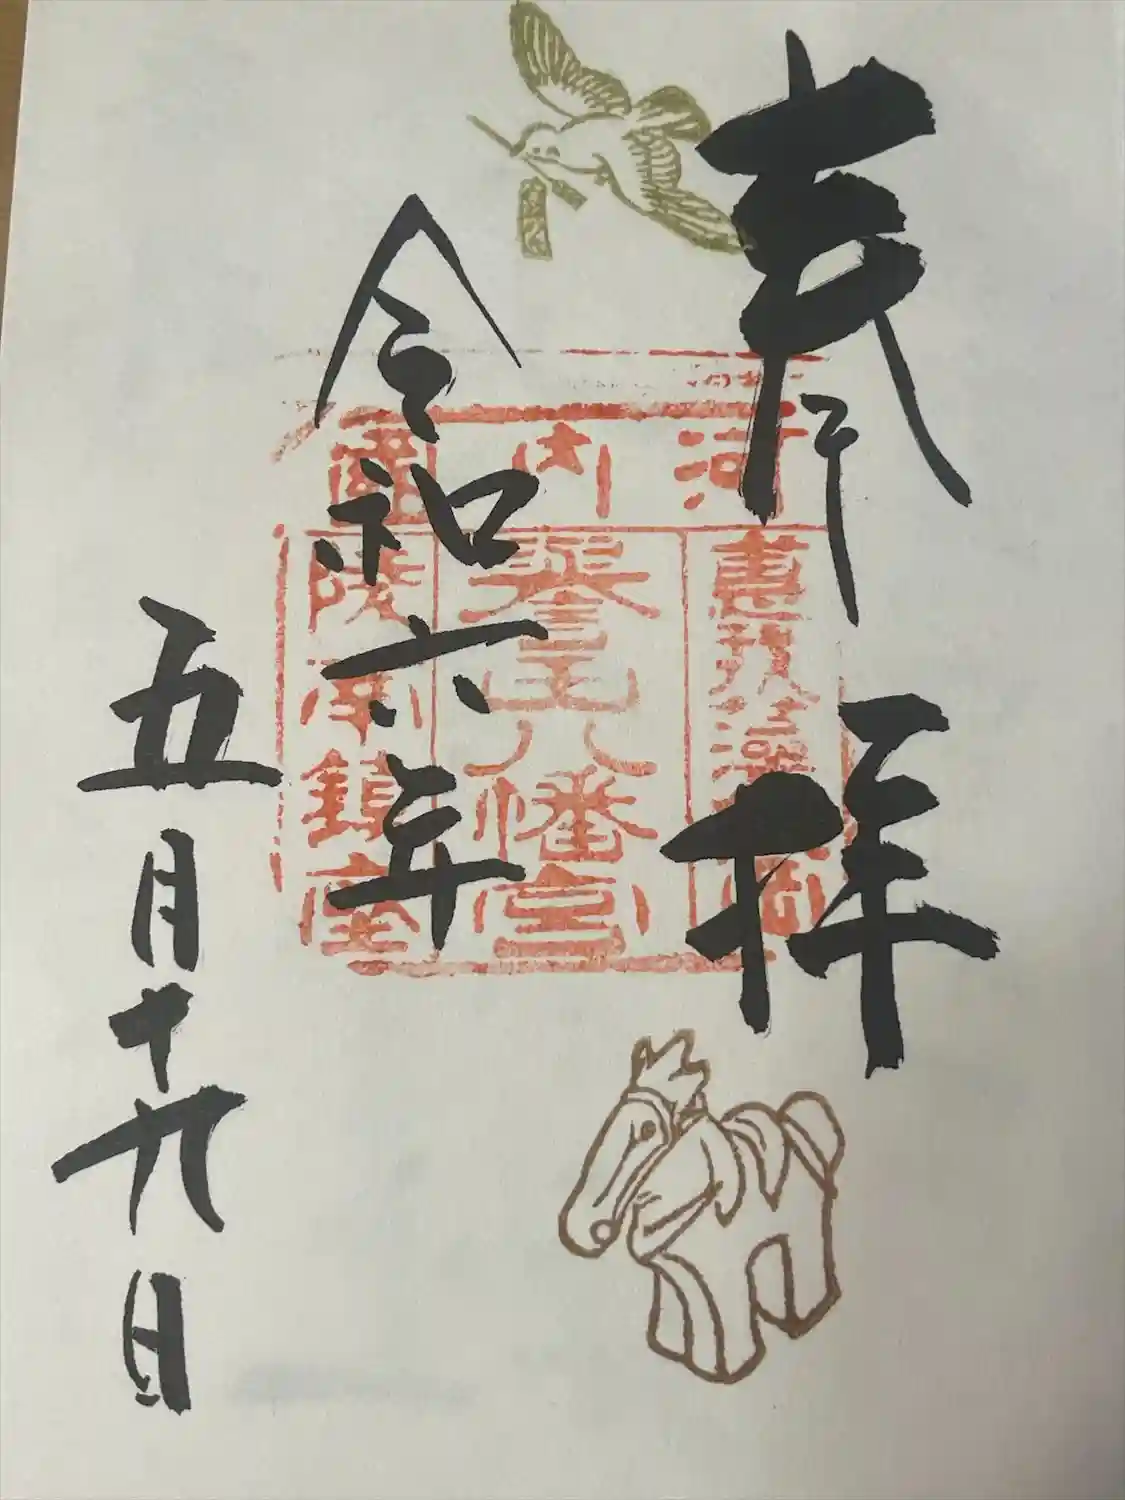 奉拝
河内國
誉田八幡宮
陵南鎮座
令和六年
五月十九日